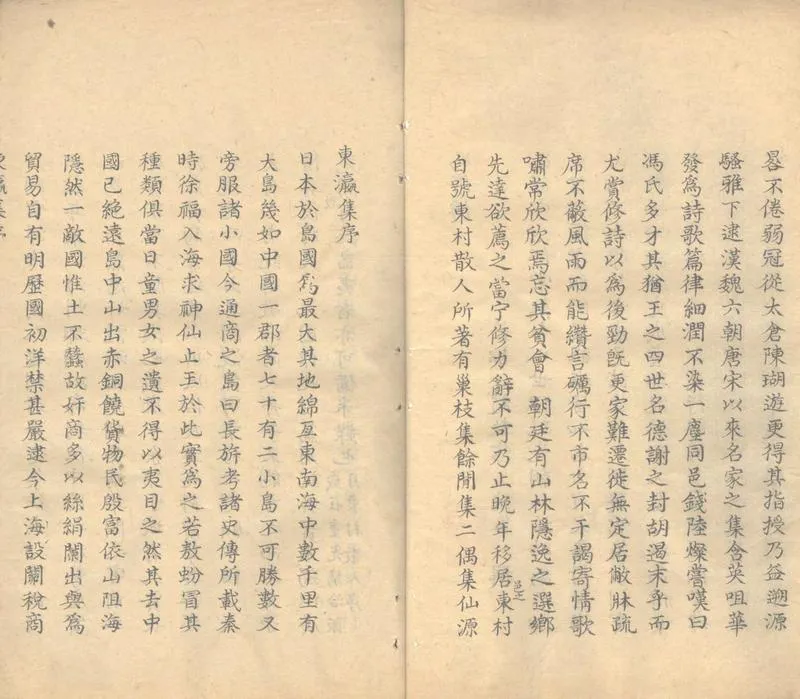 晷不倦弱冠從太倉陳瑚遊更得其指授乃益遡源
騷雅下逮漢魏六朝唐宋以來名家之集含英咀華
發爲詩歌篇律細潤不染一塵同邑錢陸燦嘗嘆曰
馮氏多才其猶王之四世名德謝之封胡遏末乎而
尤賞修詩以爲後勁旣更家難遷徙無定居敝牀疏
席不蔽風雨而能纘言礪行不市名不干謁寄情歌
嘯常欣欣焉忘其貧會 朝廷有山林隱逸之選鄉
先達欲薦之當宁修力辭不可乃止晚年移居東村
自號東村散人所著有巢枝集餘閒集二偶集仙源
東瀛集序
日本於島國爲最大其地綿亙東南海中數千里有
大島幾如中國一郡者七十有二小島不可勝數又
旁服諸小國今通商之島曰長旂考諸史傳所載秦
時徐福入海求神仙止王於此實爲之若敖蚡冒其
種類俱當日童男女之遺不得以夷目之然其去中
國已絕遠島中山出赤銅饒貨物民殷富依山阻海
隱然一敵國惟土不蠶故奸商多以絲絹闌出與爲
貿易自有明歷國初洋禁甚嚴逮今上海設關稅商